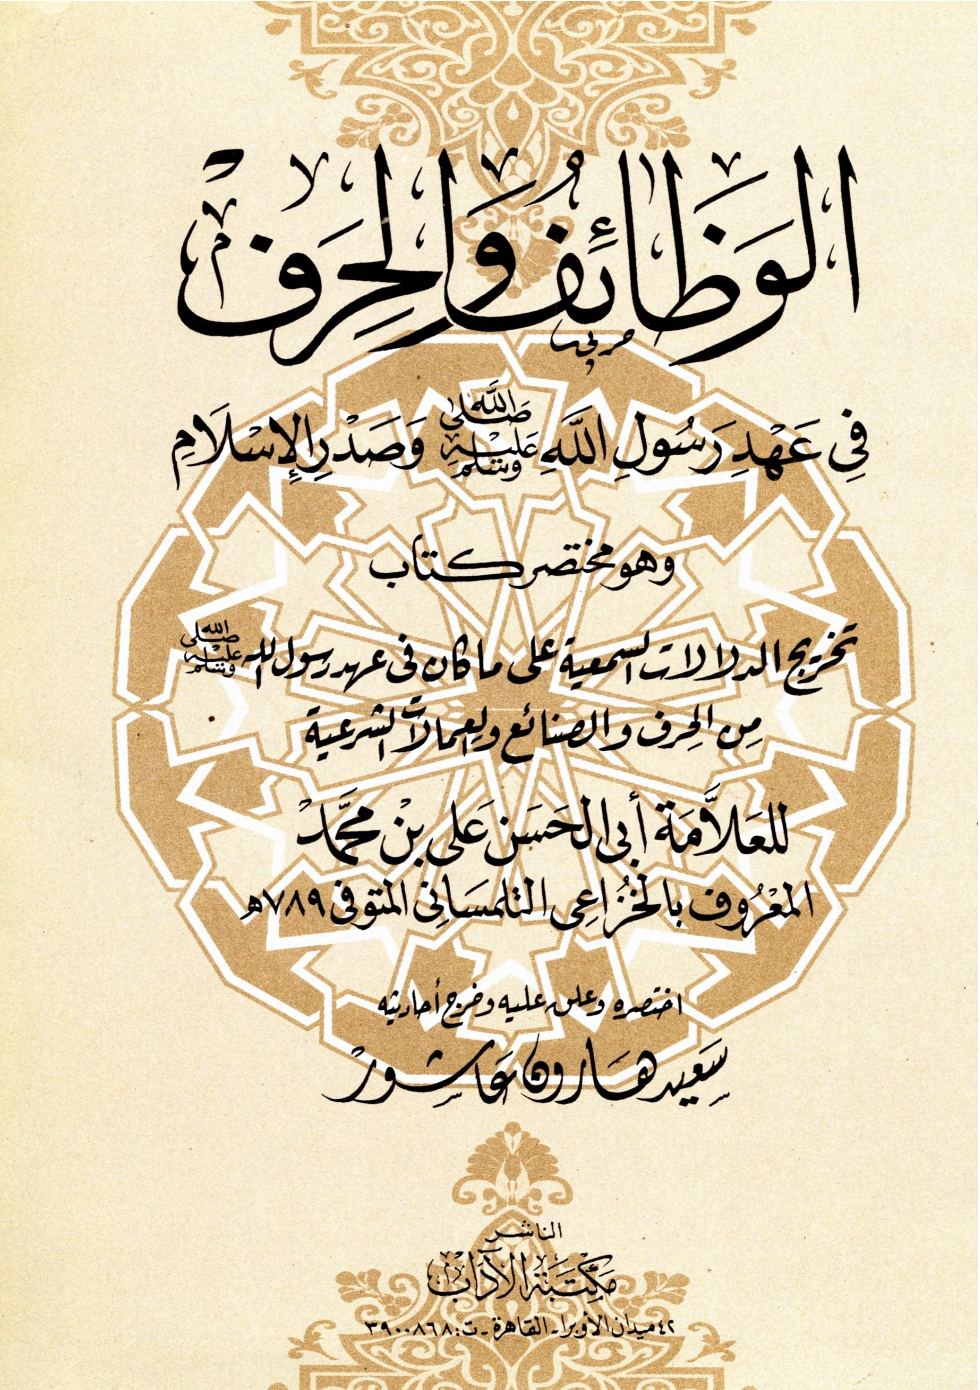 الوَظَائِف وَالحِرَف
فِي عَهْدِ رَسُولِ اللَّهِ صلى الله عليه وسلم وَصَدْرِ الإِسْلَامِ
وهو مختصر كتاب
تخريج الدلالات السمعية على ما كان فى عهد رسول الله صلى الله عليه وسلم
مِن الحِرف والصنائع والعمالات الشرعية
للعَلاَّمَة أبى الحَسَن عَلى بنْ محمَّد
المعْرُوف بالخُزُاعِى التلمسَانى المتوفى ٧٨٩ه
اختصره وعلق عليه وخرج أحاديثه
سَعيد هَارون عَاشور
الناشر
مَكْتَبَة الآدَاب
٤٢ ميدان الأوبرا - القاهرة - ت: ٣٩٠٠٨٦٨